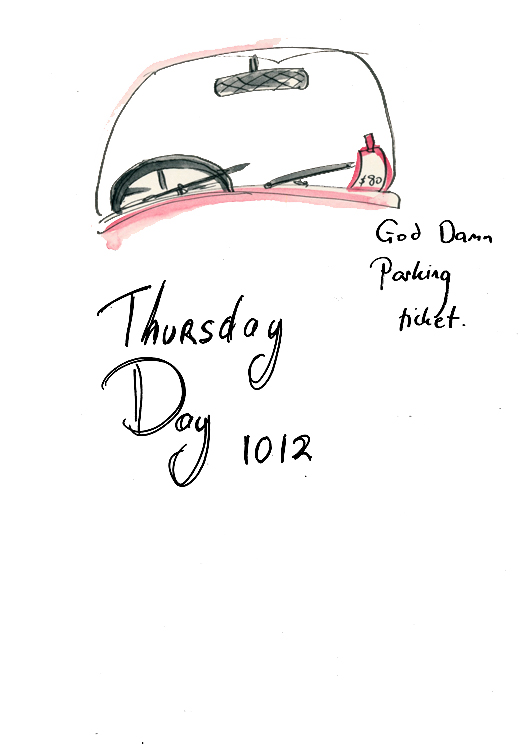 $80
God Damn
Parking
ticket.
Thursday
Day 1012